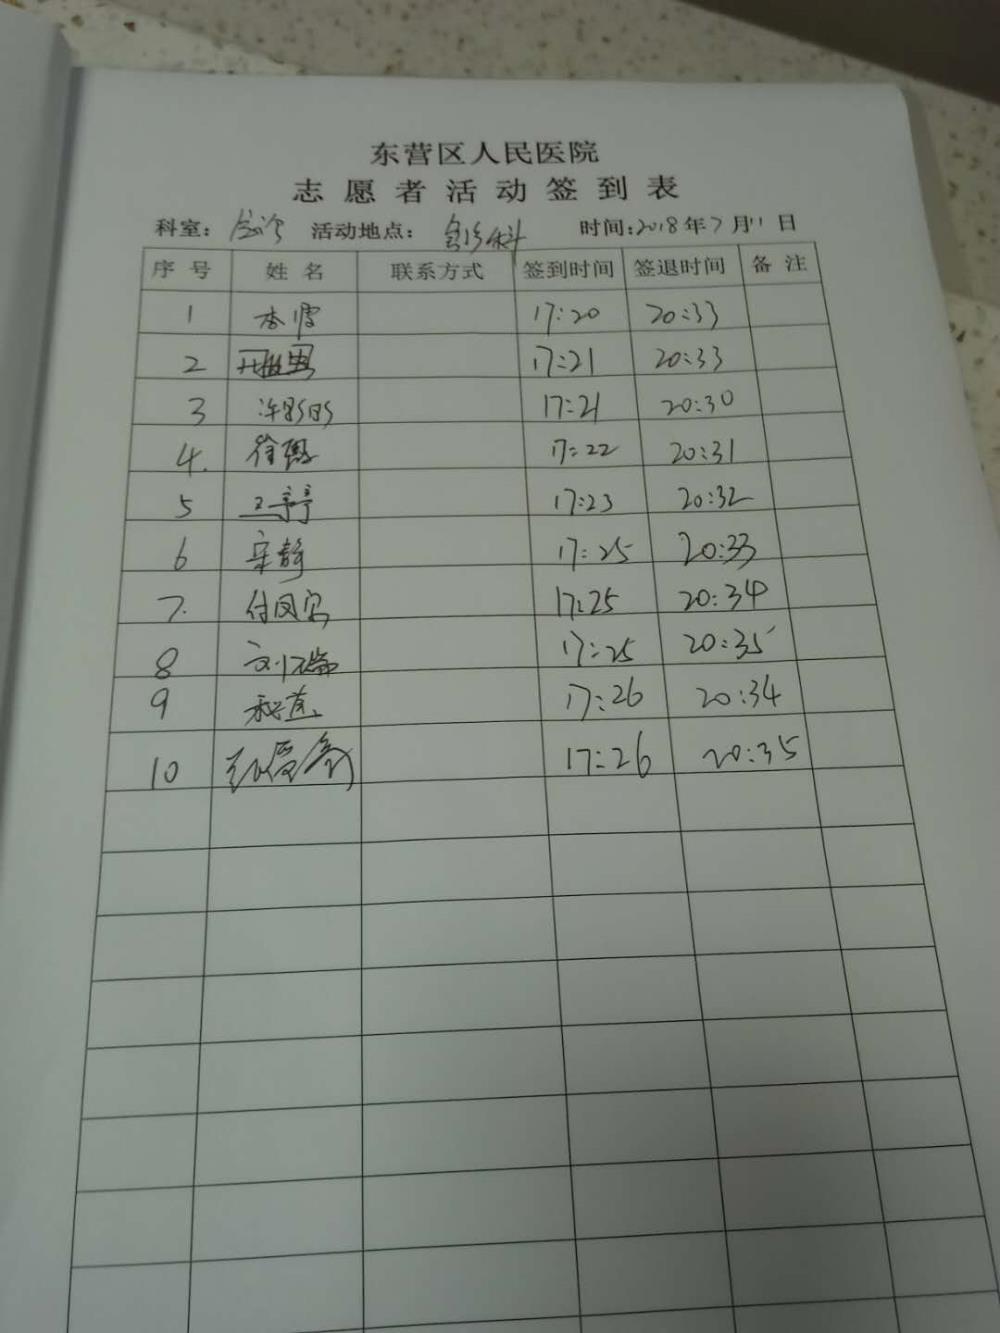 东营区人民医院
志愿者活动签到表
科室：急诊 活动地点：急诊科 时间：2018年7月11日
序号 姓名 联系方式 签到时间 签退时间 备注
1 李雪 17:20 20:33
2 17:21 20:33
3 许明明 17:21 20:30
4. 徐磊 17:22 20:31
5 王亭亭 17:23 20:32
6 宋静 17:25 20:33
7. 付凤宝 17:25 20:34
8 刘 17:25 20:35
9 17:26 20:34
10 17:26 20:35